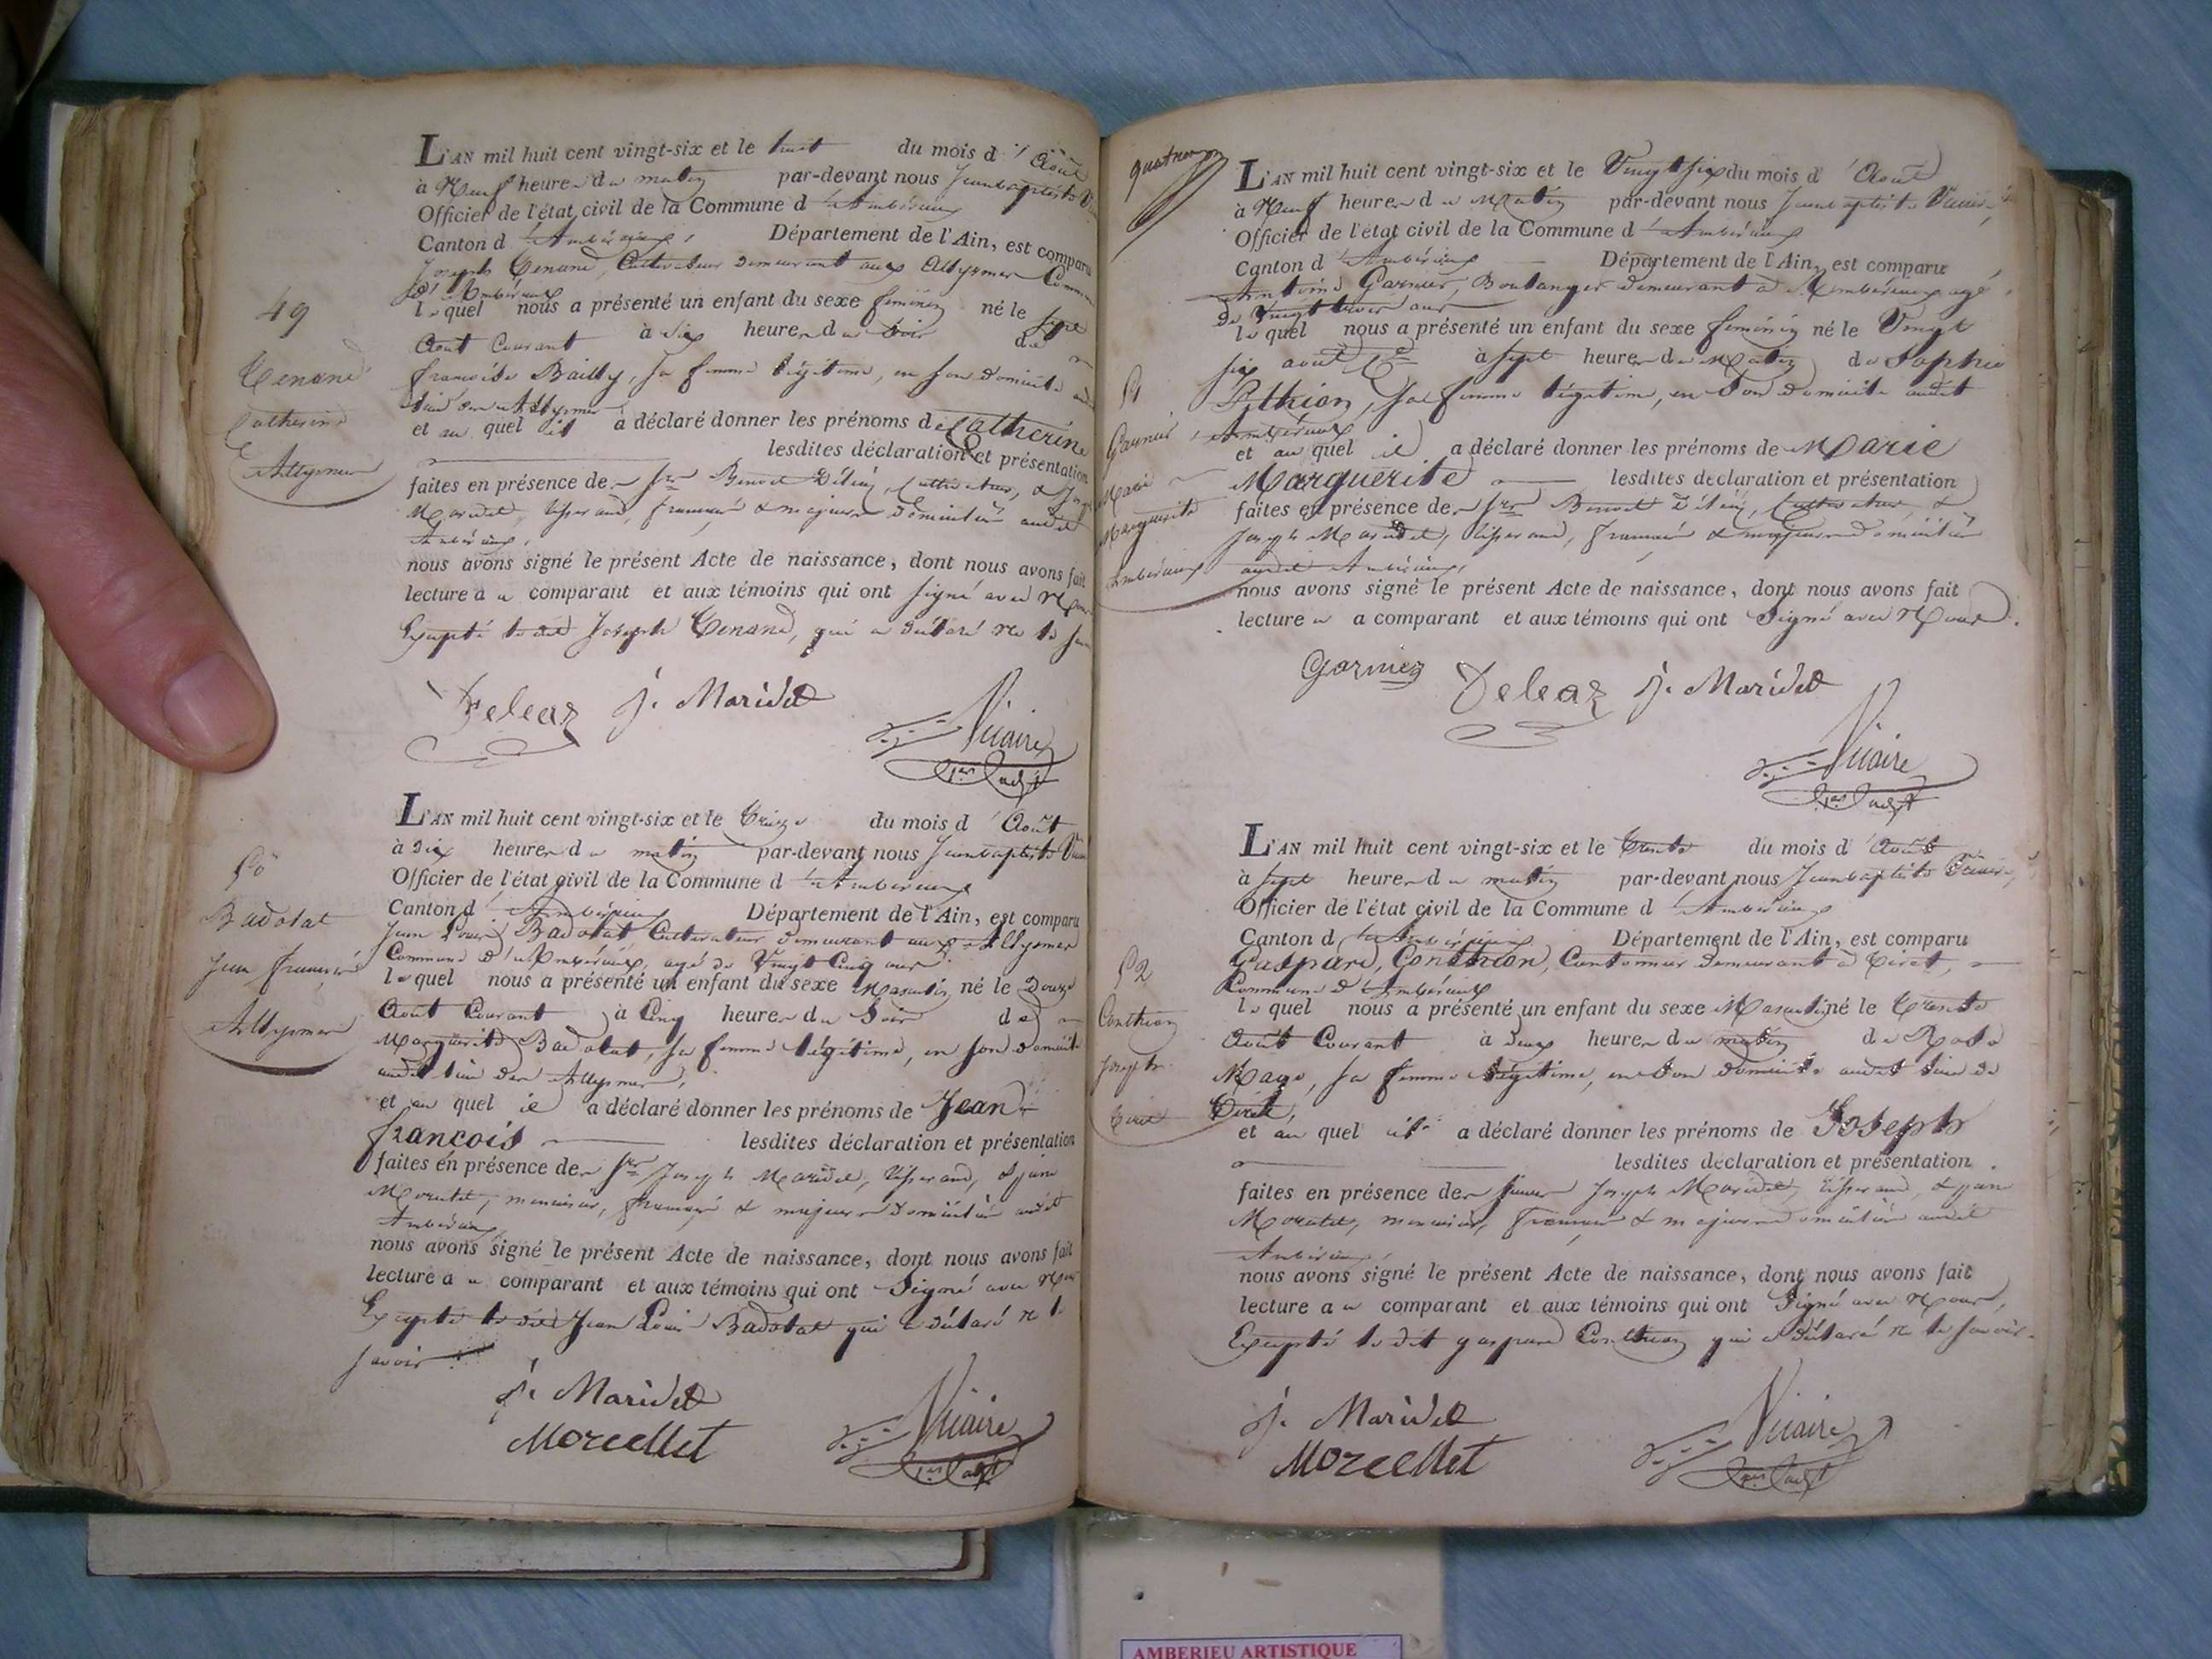 L'AN mil huit cent vingt-six et le huit du mois d'Août
à Neuf heures du matin par-devant nous Jean baptiste
Officier de l'état civil de la Commune d'Ambérieux
Canton d'Ambérieux, Département de l'Ain, est comparu
Joseph Tenand, Cultivateur demeurant aux Allymes
d'Ambérieux
lequel nous a présenté un enfant du sexe feminin né le Sept
Aout Courant à six heures du Soir de
françoise Bailly, sa femme légitime, en son domicile
et au quel il a déclaré donner les prénoms de Catherine
lesdites déclaration et présentation
faites en présence des Srs Benoit Cultivateur, &
Maridet, tisserand, français & majeurs Domiciliés audit
Ambérieux,
nous avons signé le présent Acte de naissance, dont nous avons fait
lecture au comparant et aux témoins qui ont signé avec Nous
Excepté le dit Joseph Tenand, qui a déclaré ne le
Deleaz J. Maridet
Vicaire
49
Tenand
Catherine
Allymes
L'AN mil huit cent vingt-six et le Treize du mois d'Août
à dix heures du matin par-devant nous Jean baptiste
Officier de l'état civil de la Commune d'Ambérieux
Canton d'Ambérieux Département de l'Ain, est comparu
Jean Louis Badolat Cultivateur demeurant aux Allymes
Commune d'Ambérieux, agé de Vingt Cinq ans
lequel nous a présenté un enfant du sexe Masculin né le Douze
Août Courant à Cinq heures du Soir de
Marguerite Badolat, sa femme légitime, en son domicile
audit lieu des Allymes,
et au quel il a déclaré donner les prénoms de Jean
françois lesdites déclaration et présentation
faites en présence des Srs Joseph Maridet, tisserand, & jean
menuisier, français & majeurs Domiciliés audit
Ambérieux
nous avons signé le présent Acte de naissance, dont nous avons fait
lecture au comparant et aux témoins qui ont Signé avec Nous
Excepté le dit Jean Louis Badolat qui a déclaré ne le
savoir
J. Maridet
Morcellet
Vicaire
50
Badolat
Jean françois
Allymes
L'AN mil huit cent vingt-six et le Vingt six du mois d'Août
à Neuf heures du Matin par-devant nous Jean baptiste Vicaire
Officier de l'état civil de la Commune d'Ambérieux
Canton d'Ambérieux Département de l'Ain, est comparu
Antoine Garnier, Boulanger demeurant à Ambérieux agé
de Vingt trois ans
lequel nous a présenté un enfant du sexe féminin né le Vingt
six août à sept heures du Matin de Sophie
Pithion, sa femme légitime, en Son domicile audit
Ambérieux
et au quel il a déclaré donner les prénoms de Marie
Marguerite lesdites déclaration et présentation
faites en présence des Srs Benoit Cultivateur, &
Joseph Maridet, tisserand, français & majeurs domiciliés
audit Ambérieux,
nous avons signé le présent Acte de naissance, dont nous avons fait
lecture au comparant et aux témoins qui ont Signé avec Nous.
Garnier Deleaz J. Maridet
Vicaire
51
Garnier
Marie
Marguerite
Ambérieux
L'AN mil huit cent vingt-six et le Trente du mois d'Août
à sept heures du matin par-devant nous Jean baptiste Vicaire
Officier de l'état civil de la Commune d'Ambérieux
Canton d'Ambérieux Département de l'Ain, est comparu
Gaspard, Conthion, Cantonnier demeurant à Tiret,
Commune d'Ambérieux
lequel nous a présenté un enfant du sexe Masculin né le Trente
Août Courant à deux heures du matin de Rose
sa femme légitime, en Son domicile audit lieu de
Tiret,
et au quel il a déclaré donner les prénoms de Joseph
lesdites déclaration et présentation
faites en présence des sieurs Joseph Maridet, tisserand, & jean
menuisier, français & majeurs domiciliés audit
Ambérieux,
nous avons signé le présent Acte de naissance, dont nous avons fait
lecture au comparant et aux témoins qui ont Signé avec Nous,
Excepté le dit gaspard Conthion qui a déclaré ne le savoir.
J. Maridet
Morcellet
Vicaire
52
Conthion
Joseph
Tiret
AMBERIEU ARTISTIQUE